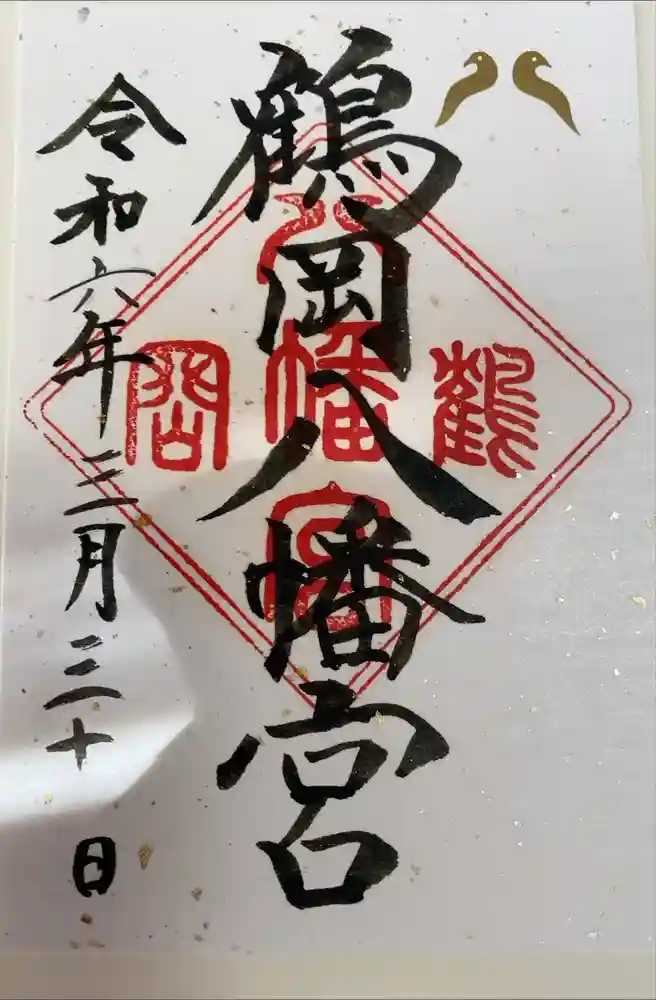 鶴岡八幡宮
令和六年三月三十日
鶴
八幡宮
岡